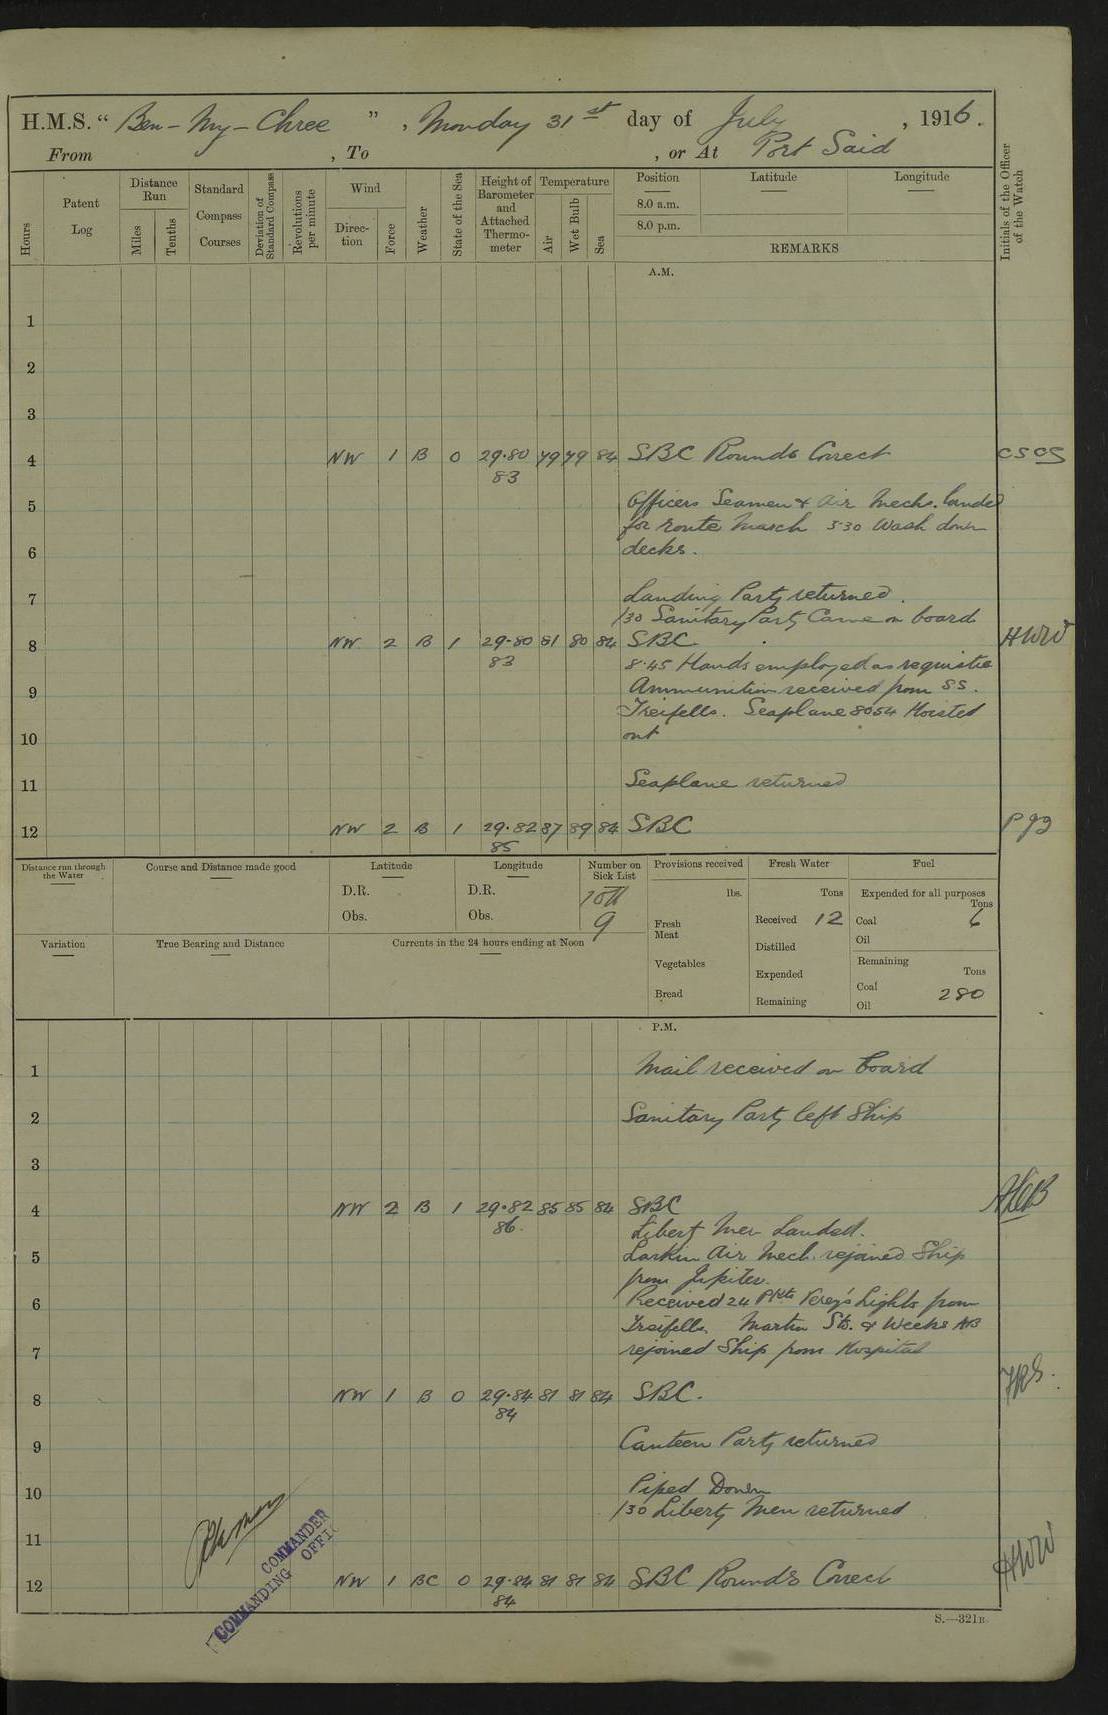 H.M.S. “ Ben-My-Chree ” , Monday 31st day of July , 1916.
From , To , or At Port Said
Hours
Patent Log
Distance Run
Miles
Tenths
Standard Compass Courses
Deviation of Standard Compass
Revolutions per minute
Wind
Direction
Force
Weather
State of the Sea
Height of Barometer and Attached Thermometer
Temperature
Air
Wet Bulb
Sea
Position
8.0 a.m.
8.0 p.m.
Latitude
Longitude
REMARKS
Initials of the Officer of the Watch
A.M.
1
2
3
4 NW 1 B 0 29.80 79 79 84 SBC Rounds Correct CSCS
83
Officers Seamen & Air Mechs. landed
5
for route March 5.30 Wash down
6 decks.
7 Landing Party returned.
/30 Sanitary Party Came on board
8 NW 2 B 1 29.80 81 80 84 SBC HWW
83 8.45 Hands employed as requisite
9 Ammunition received from SS.
Treifells. Seaplane 8054 Hoisted
10 out
11 Seaplane returned
12 NW 2 B 1 29.82 87 89 84 SBC
85
Distance run through the Water
Course and Distance made good
Latitude
D.R.
Obs.
Longitude
D.R.
Obs.
Number on Sick List
9
Provisions received
lbs.
Fresh Meat
Vegetables
Bread
Fresh Water
Tons
Received 12
Distilled
Expended
Remaining
Fuel
Expended for all purposes
Tons
Coal 6
Oil
Remaining
Tons
Coal 280
Oil
Variation
True Bearing and Distance
Currents in the 24 hours ending at Noon
P.M.
1 Mail received on board
2 Sanitary Party left Ship
3
4 NW 2 B 1 29.82 85 85 84 SBC
86. Liberty Men Landed.
5 Larkin Air Mech. rejoined Ship
from Jupiter.
6 Received 24 Pkts Verey's Lights from
Treifells. Martin Sto. & Weeks AB
7 rejoined Ship from Hospital
8 NW 1 B 0 29.84 81 81 84 SBC.
84
9 Canteen Party returned
10 Piped Down
/30 Liberty Men returned
11
12 NW 1 BC 0 29.84 81 81 84 SBC Rounds Correct HWW
84
COMMANDER
COMMANDING OFFI
S.—321B.